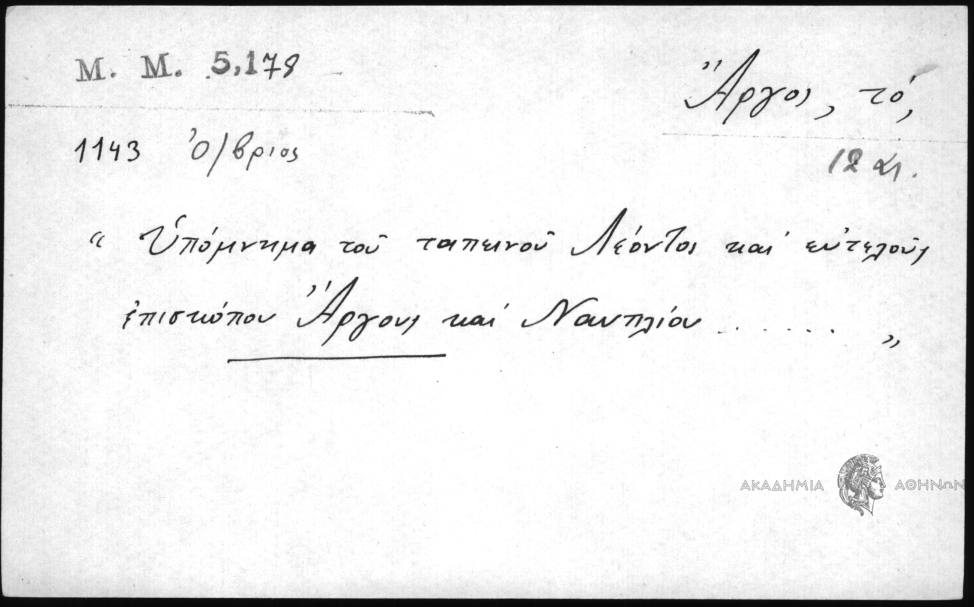 Μ. Μ. 5,178
Ἄργος, τό,
1143 Ὀ/βριος
12 αι.
“ Ὑπόμνημα τοῦ ταπεινοῦ Λέοντος καὶ εὐτελοῦς
ἐπισκόπου Ἄργους καὶ Ναυπλίου . . . . . . . „
ΑΚΑΔΗΜΙΑ ΑΘΗΝΩΝ